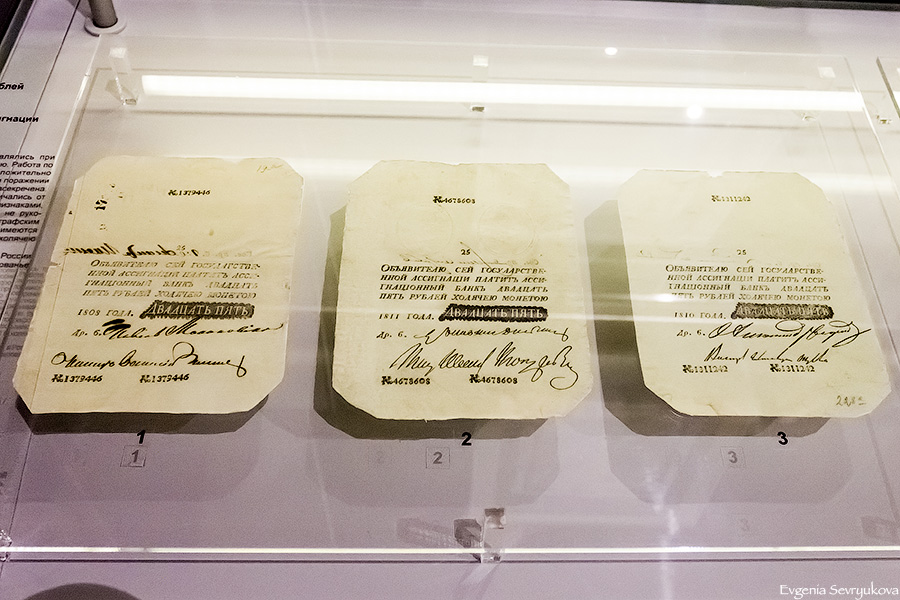 блей
игнации
влялись при
ю. Работа по
положительно
поражении
асекречена
ичались от
ризнаками,
не руко-
графским
имеются
холячею
России
17
№.1379446
25
ОБЪЯВИТЕЛЮ СЕЙ ГОСУДАРСТВЕ-
ННОЙ АССИГНАЦИ ПЛАТИТЪ АССИ-
ГНАЦІОННЫЙ БАНКЪ ДВАДЦАТЬ
ПЯТЬ РУБЛЕЙ ХОЛЯЧЕЮ МОНЕТОЮ
1809 ГОДА. ДВАДЦАТЬ ПЯТЬ
Др. 6.
№1379446 №1379446
1
1
№4678608
25
ОБЪЯВИТЕЛЮ СЕЙ ГОСУДАРСТВЕ-
ННОЙ АССИГНАЦИ ПЛАТИТЪ АССИ-
ГНАЦІОННЫЙ БАНКЪ ДВАДЦАТЬ
ПЯТЬ РУБЛЕЙ ХОЛЯЧЕЮ МОНЕТОЮ
1811 ГОДА. ДВАДЦАТЬ ПЯТЬ
Др. 6.
№4678608 №4678608
2
2
№1311242
25
ОБЪЯВИТЕЛЮ СЕЙ ГОСУДАРСТВЕ-
ННОЙ АССИГНАЦИ ПЛАТИТЪ АССИ-
ГНАЦІОННЫЙ БАНКЪ ДВАДЦАТЬ
ПЯТЬ РУБЛЕЙ ХОЛЯЧЕЮ МОНЕТОЮ
1810 ГОДА. ДВАДЦАТЬ ПЯТЬ
Др. 6.
№1311242 №1311242
3
3
Evgenia Sevryukova